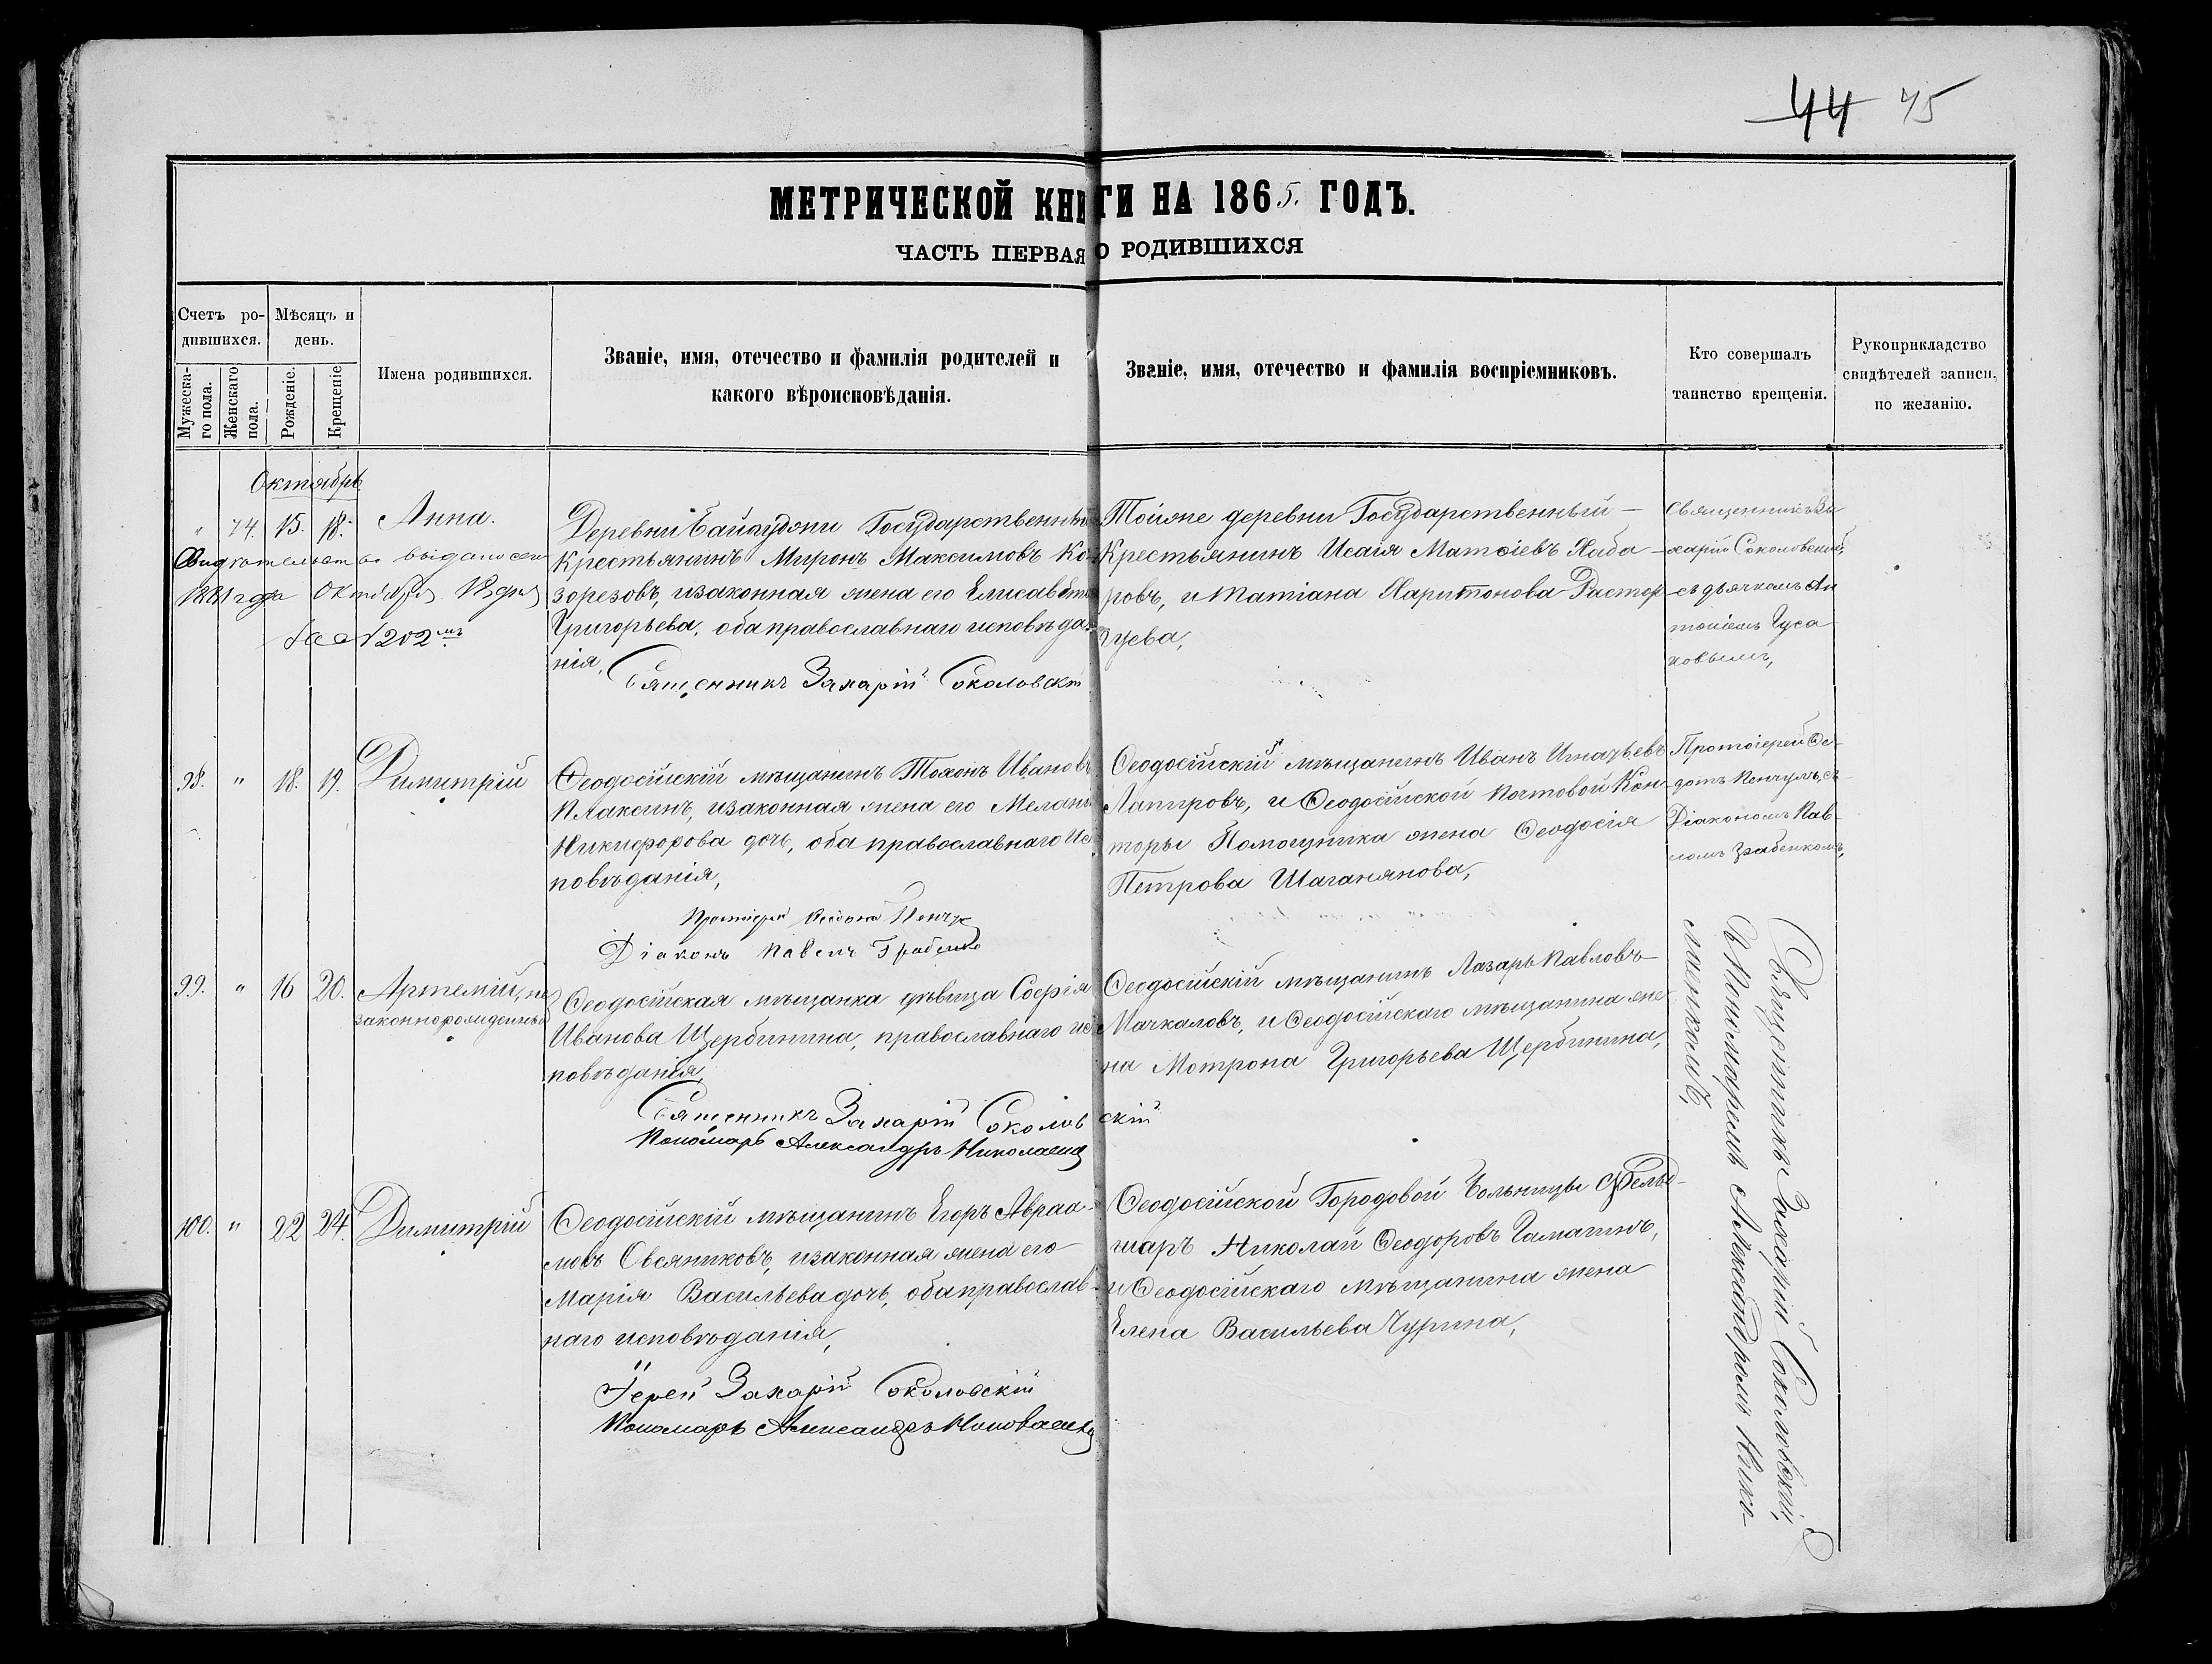 44 45
МЕТРИЧЕСКОЙ КНИГИ НА 1865. ГОДЪ.
ЧАСТЬ ПЕРВАЯ О РОДИВШИХСЯ
Счетъ ро-
дившихся.
Мужеска-
го пола.
Женскаго
пола.
Мѣсяцъ и
день.
Рожденіе.
Крещеніе
Имена родившихся.
Званіе, имя, отечество и фамилія родителей и
какого вѣроисповѣданія.
Званіе, имя, отечество и фамилія воспріемниковъ.
Кто совершалъ
таинство крещенія.
Рукоприкладство
свидѣтелей записи,
по желанію.
Октябрь
" 74. 15. 18. Анна.
Свидѣтельство выдано сего
1881 года Октября 18 дня
за № 202мъ
Деревни Байбугони Государственный
Крестьянинъ Миронъ Максимовъ Ко-
зорезовъ, и законная жена его Елисавета
Григорьева, оба православнаго исповѣда-
нія,
Священникъ Захарій Соколовскій
Тойже деревни Государственный
Крестьянинъ Исаія Матѳіевъ Хаба-
ровъ, и Татіана Харитонова Растор-
гуева,
Священникъ За-
харій Соколовскій,
съ дьячкомъ Ан
тоніемъ Гуса
ковымъ,
98. " 18. 19. Димитрій
Ѳеодосійскій мѣщанинъ Тихонъ Ивановъ
Плаксинъ, и законная жена его Меланія
Никифорова дочь, оба православнаго Ис-
повѣданія,
Протоіерей Ѳеодотъ Кенчулъ
Діаконъ Павелъ Грабенко
Ѳеодосійскій мѣщанинъ Иванъ Игнатьевъ
Лапировъ, и Ѳеодосійской Почтовой Кон-
торы Помощника жена Ѳеодосія
Петрова Шаганянова,
Протоіерей Ѳе-
дотъ Кенчулъ, съ
Діакономъ Пав-
ломъ Грабенкомъ,
99. " 16 20. Артемій, не
законнорожденный
Ѳеодосійская мѣщанка дѣвица Софія
Иванова Щербинина, православнаго ис-
повѣданія,
Священникъ Захарій Соколовскій
Пономарь Александръ Николаенко
Ѳеодосійскій мѣщанинъ Лазарь Павловъ
Мачкаловъ, и Ѳеодосійскаго мѣщанина же
на Мотрона Григорьева Щербинина,
Священникъ Захарій Соколовскій,
съ Пономаремъ Александромъ Нико-
лаенкомъ,
100. " 22 24. Димитрій
Ѳеодосійскій мѣщанинъ Егоръ Авраа-
мовъ Овсяниковъ, и законная жена его
Марія Васильева дочь, оба православ-
наго исповѣданія,
Іерей Захарій Соколовскій
Пономарь Александръ Николаенко
Ѳеодосійской Городовой Больницы Фельд-
шаръ Николай Ѳеодоровъ Гамагинъ,
и Ѳеодосійскаго мѣщанина жена
Елена Васильева Чурина,